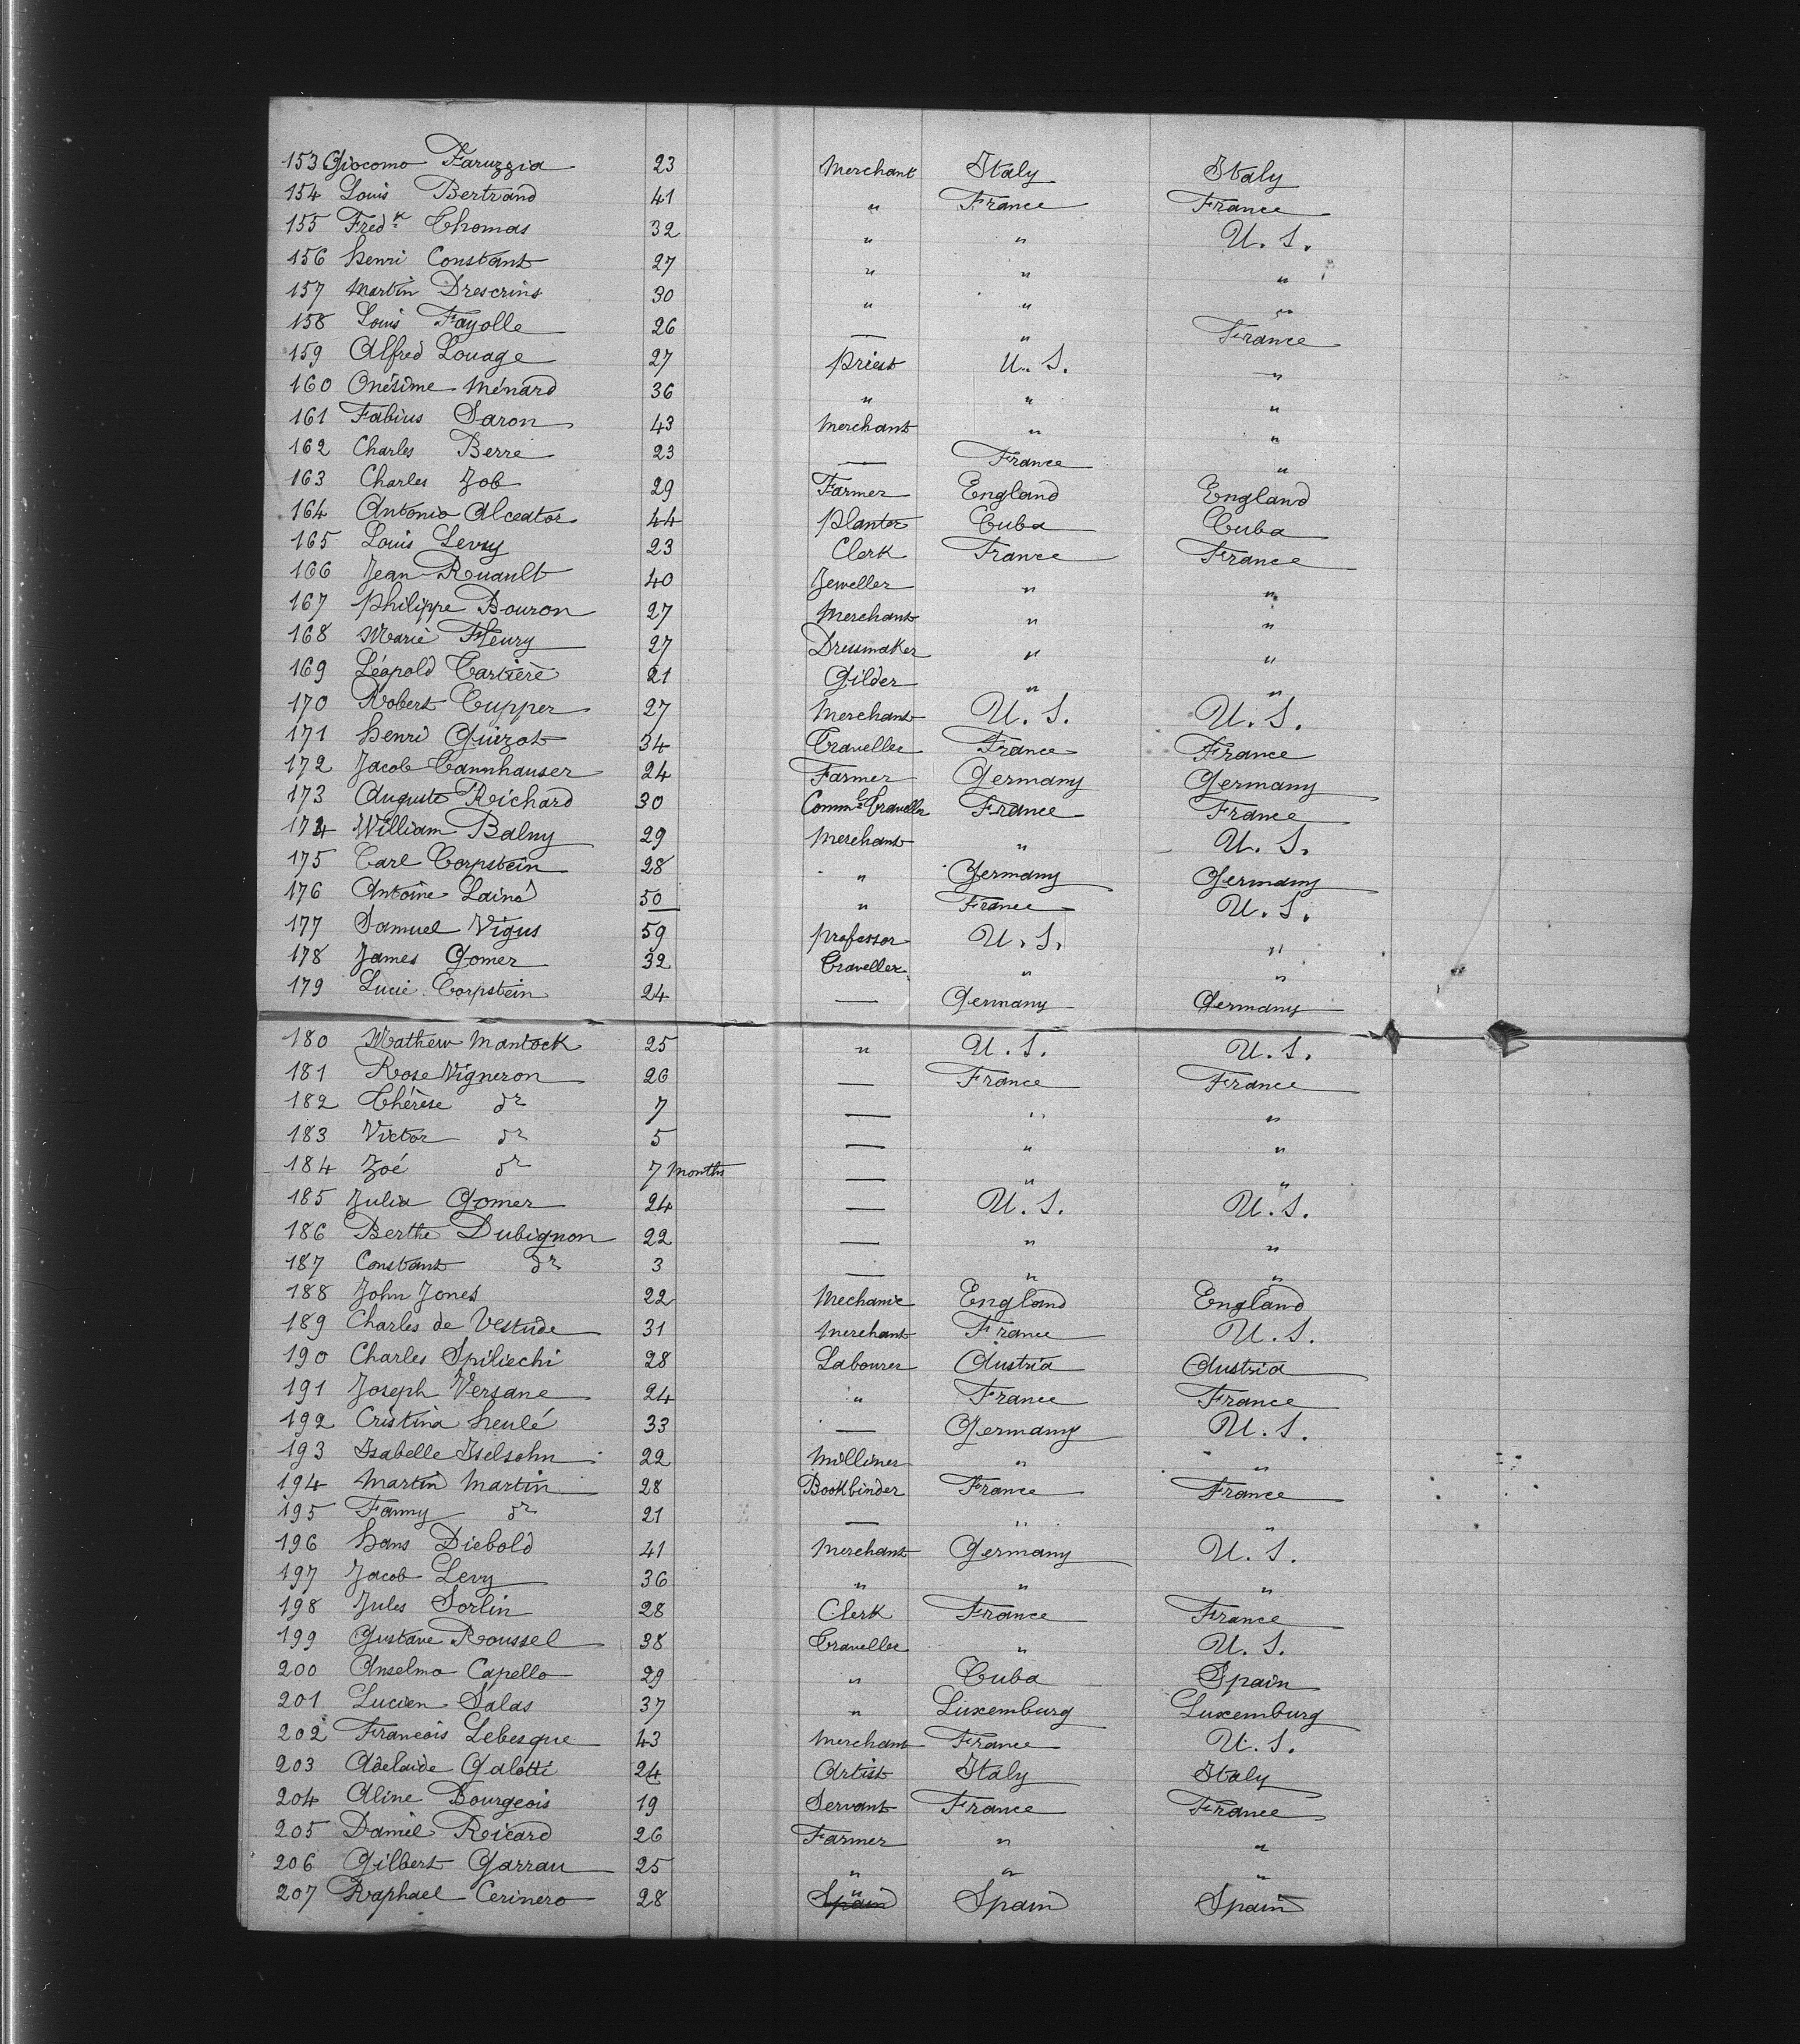 153 Giocomo Faruzzia 23 Merchant Italy Italy
154 Louis Bertrand 41 " France France
155 Fredk Thomas 32 " " U. S.
156 Henri Constant 27 " " "
157 Martin Drescrins 30 " " "
158 Louis Fayolle 26 — " France
159 Alfred Louage 27 Priest U. S. "
160 Onésime Ménard 36 " " "
161 Fabius Saron 43 Merchant " "
162 Charles Berre 23 — France "
163 Charles Job 29 Farmer England England
164 Antonio Alceator 44 Planter Cuba Cuba
165 Louis Levsy 23 Clerk France France
166 Jean Ruault 40 Jeweller " "
167 Philippe Bouron 27 Merchant " "
168 Marie Fleury 27 Dressmaker " "
169 Léopold Cartière 21 Gilder " "
170 Robert Cupper 27 Merchant U. S. U. S.
171 Henri Guizot 34 Traveller France France
172 Jacob Tannhauser 24 Farmer Germany Germany
173 Auguste Richard 30 Comml Traveller France France
174 William Balny 29 Merchant " U. S.
175 Carl Torpstein 28 " Germany Germany
176 Antoine Lainé 50 " France U. S.
177 Samuel Vigus 59 Professor U. S. "
178 James Gomer 32 Traveller " "
179 Lucie Torpstein 24 — Germany Germany
180 Mathew Mantock 25 " U. S. U. S.
181 Rose Vigneron 26 — France France
182 Thérèse do 7 — " "
183 Victor do 5 — " "
184 Zoé do 7 Months — " "
185 Julia Gomer 24 — U. S. U. S.
186 Berthe Dubignon 22 — " "
187 Constant do 3 — " "
188 John Jones 22 Mechanic England England
189 Charles de Vestude 31 Merchant France U. S.
190 Charles Spiliechi 28 Labourer Austria Austria
191 Joseph Versane 24 " France France
192 Cristina Heulé 33 — Germany U. S.
193 Isabelle Iselsohn 22 Milliner " "
194 Martin Martin 28 Bookbinder France France
195 Fanny do 21 — " "
196 Hans Diebold 41 Merchant Germany U. S.
197 Jacob Levy 36 " " "
198 Jules Sorlin 28 Clerk France France
199 Gustave Roussel 38 Traveller " U. S.
200 Anselmo Capello 29 " Cuba Spain
201 Lucien Salas 37 " Luxemburg Luxemburg
202 Francois Lebesque 43 Merchant France U. S.
203 Adelaide Galotti 24 Artist Italy Italy
204 Aline Bourgeois 19 Servant France France
205 Daniel Ricard 26 Farmer " "
206 Gilbert Garrau 25 " " "
207 Raphael Cerinero 28 Spain " Spain Spain